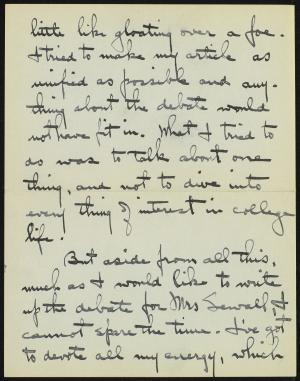 little like gloating over a foe.
I tried to make my article as
unified as possible and any-
thing about the debate would
not have fit in. What I tried to
do was to talk about one
thing, and not to dive into
every thing of interest in college
life.
But aside from all this,
much as I would like to write
up the debate for Mrs Sewall, I
cannot spare the time. I've got
to devote all my energy, which